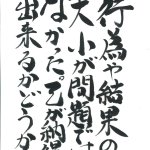 行為や結果の
大小が問題では
なかった。乙が納得
出来るかどうか